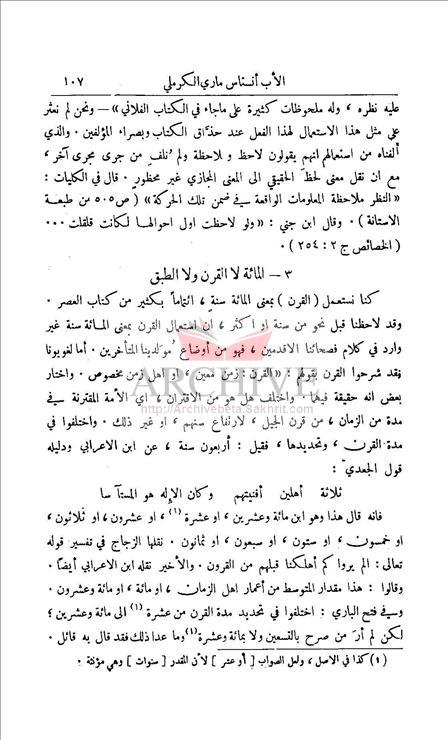 الأب أنستاس ماري الكرملي ١٠٧
عليه نظره ، وله ملحوظات كثيرة على ماجاء في الكتاب الفلاني» — ونحن لم نعثر
على مثل هذا الاستعمال لهذا الفعل عند حذاق الكتاب وبصراء المؤلفين . والذي
ألفناه من استعمالهم انهم يقولون لاحظ و ملاحظة ولم نلف من جرى مجرى آخر ،
مع ان نقل معنى لحظ الحقيقي الى المعنى المجازي غير محظور . قال في الكليات :
«النظر ملاحظة المعلومات الواقعة في ضمن تلك الحركة» ( ص٥٠٥ من طبعة
الاستانة ) . وقال ابن جني : «ولو لاحظت اول احوالها لكانت قلقلت ...
( الخصائص ج ٢ : ٢٥٤ ) .
٣ — المائة لا القرن ولا الطبق
كنا نستعمل ( القرن ) بمعنى المائة سنة ، ائتماماً بكثير من كتاب العصر .
وقد لاحظنا قبل نحو من سنة او اكثر ، ان استعمال القرن بمعنى المائة سنة غير
وارد في كلام فصحائنا الاقدمين ، فهو من أوضاع مولدينا المتأخرين . أما لغويونا
فقد شرحوا القرن بقولهم : «القرن : زمن معين ، او اهل زمن مخصوص . واختار
بعض انه حقيقة فيهما واختلف هل هو من الاقتران ، اي الأمة المقترنة في
مدة من الزمان ، من قرن الجبل ، لارتفاع سنهم ، او غير ذلك . واختلفوا في
مدة القرن ، وتحديدها ، فقيل : أربعون سنة ، عن ابن الاعرابي ودليله
قول الجعدي :
ثلاثة أهلين أفنيتهم وكان الإله هو المستآسا
فانه قال هذا وهو ابن مائة وعشرين ، او عشرة (١) ، او عشرون ، او ثلاثون ،
او خمسون ، او ستون ، او سبعون ، او ثمانون . نقلها الزجاج في تفسير قوله
تعالى : الم يروا كم أهلكنا قبلهم من القرون . والأخير نقله ابن الاعرابي أيضاً .
وقالوا : هذا مقدار المتوسط من أعمار اهل الزمان ، او مائة ، او مائة وعشرون .
وفي فتح الباري : اختلفوا في تحديد مدة القرن من عشرة (١) الى مائة وعشرين ؛
لكن لم أر من صرح بالتسعين ولا بمائة وعشرة (١) وما عدا ذلك فقد قال به قائل .
(١) كذا في الاصل ، ولعل الصواب [ أو عشر ] لأن المقدر [ سنوات ] وهي مؤنثة ؛
ARCHIVE
http://Archivebeta.Sakhrit.com